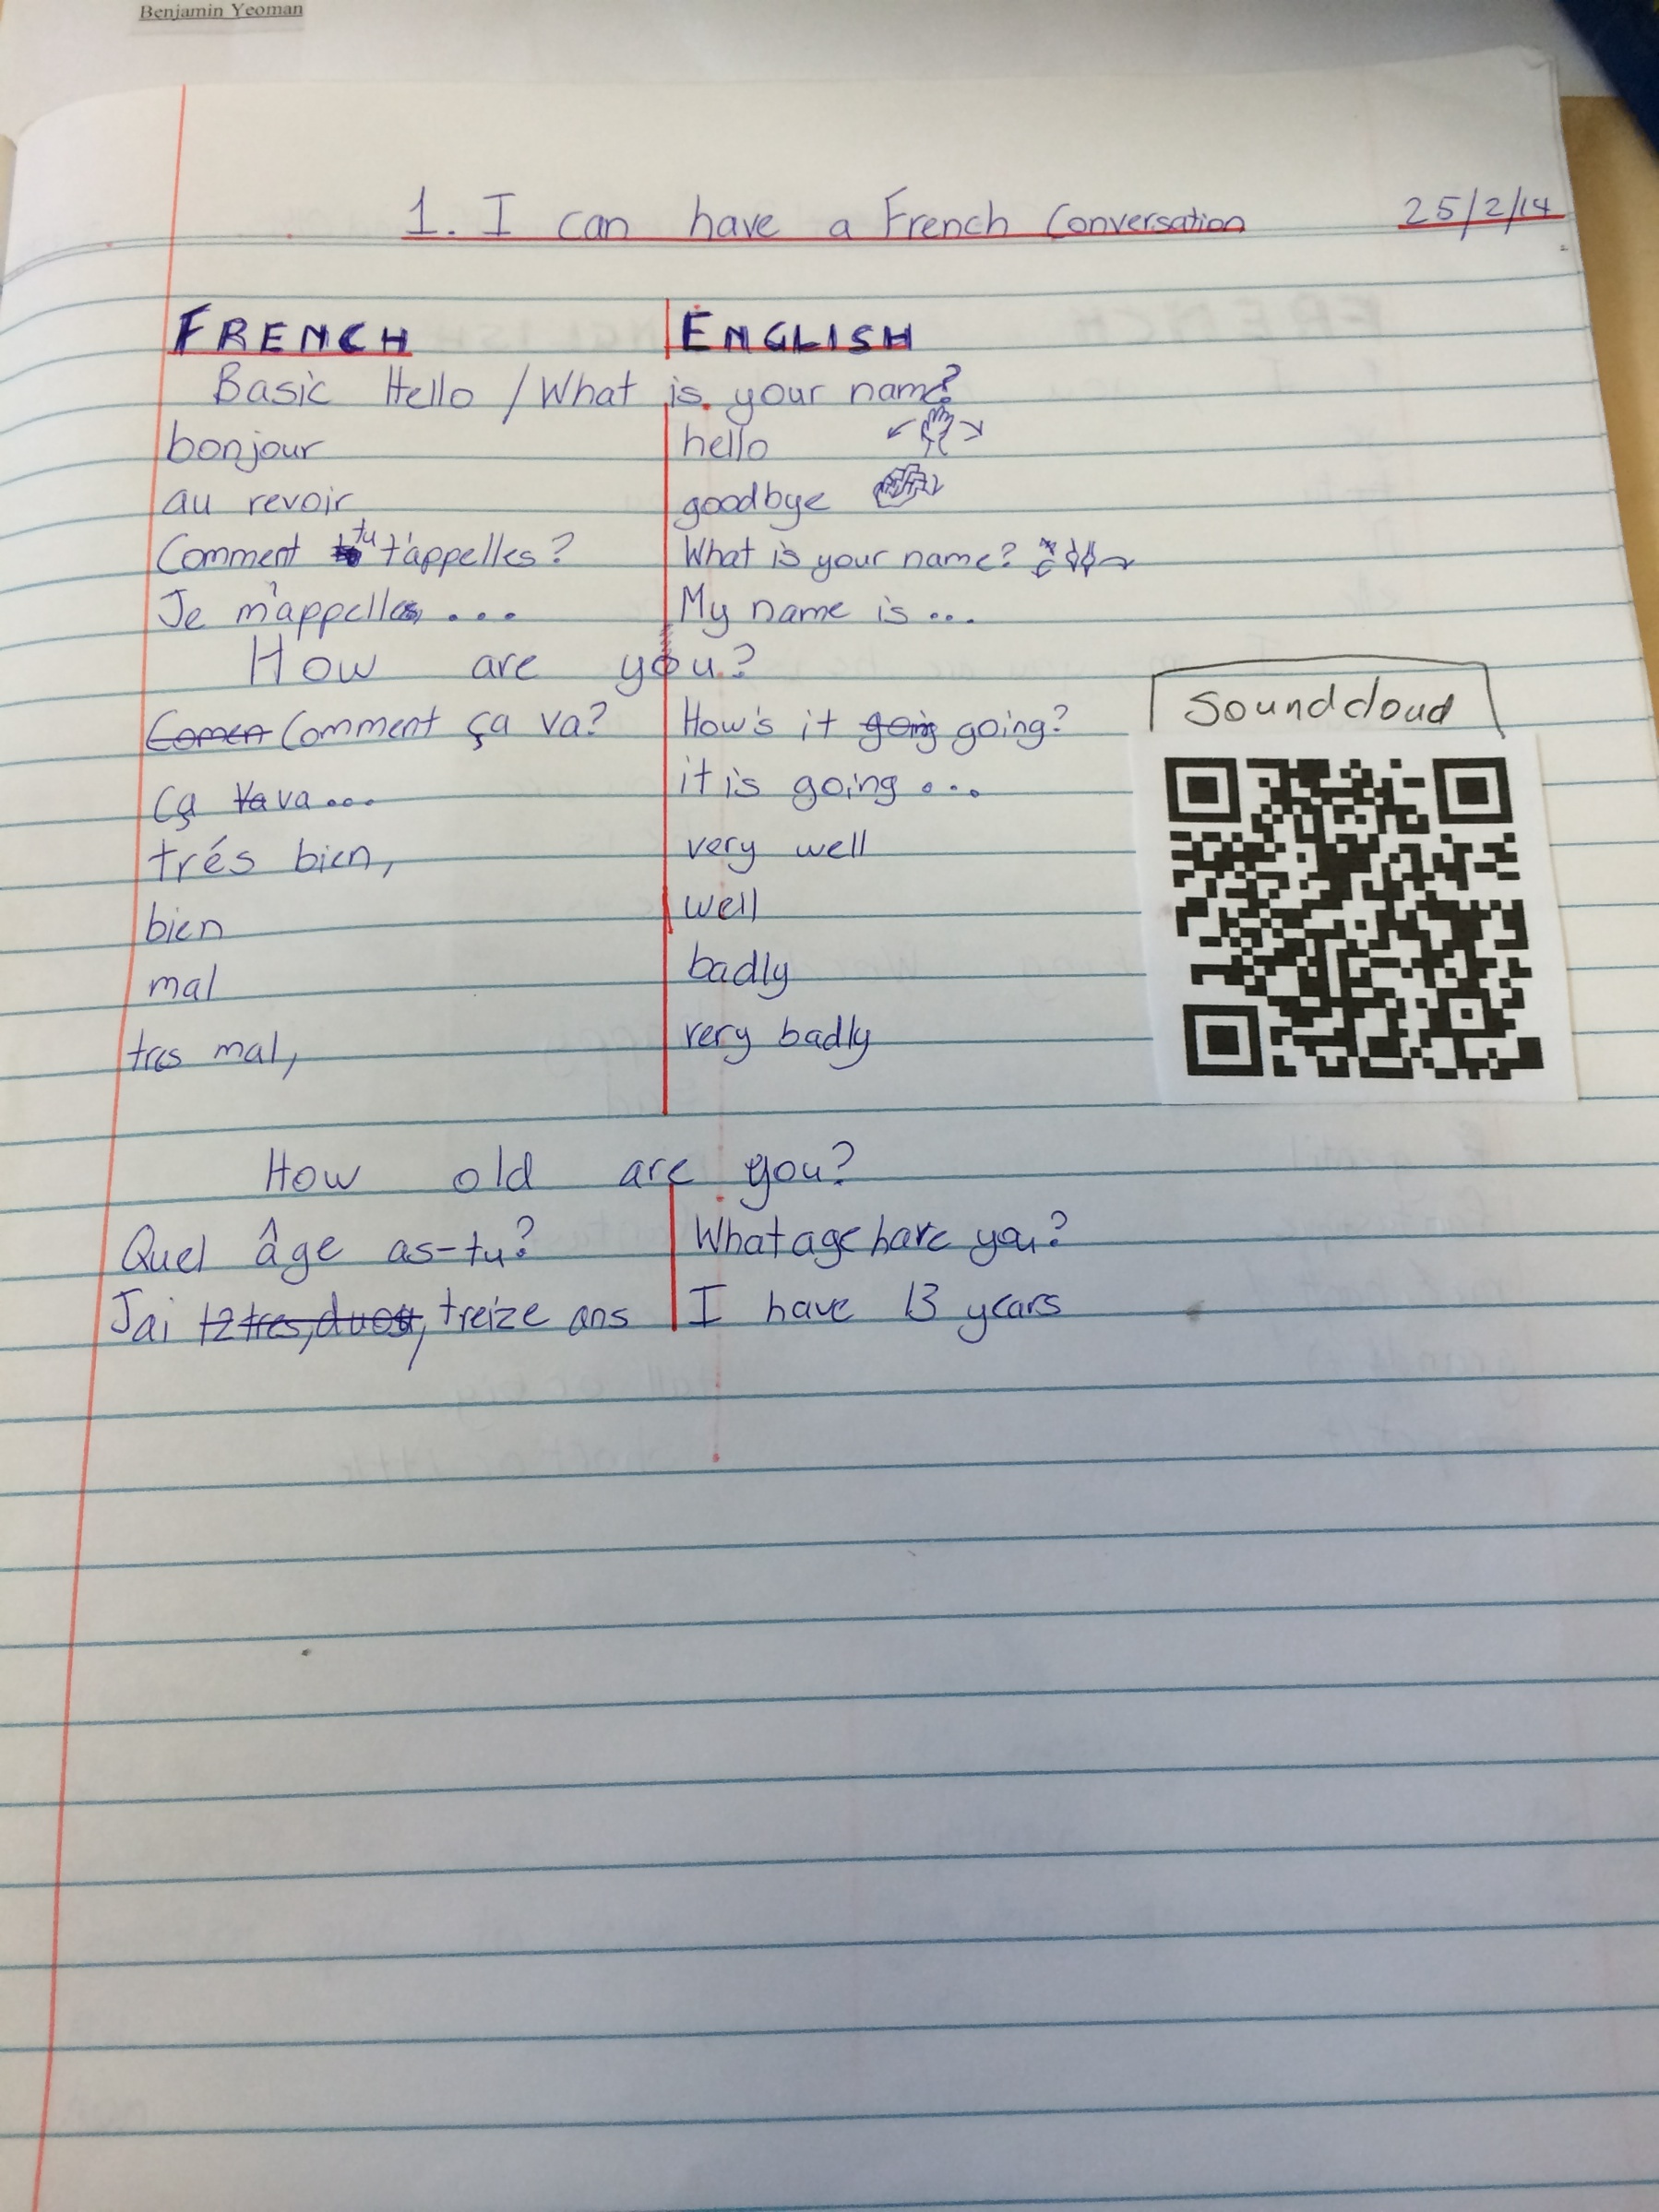 Benjamin Yeoman
1. I can have a French Conversation 25/2/14
FRENCH ENGLISH
Basic Hello / What is your name?
bonjour hello
au revoir goodbye
Comment tu t'appelles? What is your name?
Je m'appelle ... My name is ...
How are you?
Comen Comment ça va? How's it goig going?
Ça va va... it is going ...
trés bien, very well
bien well
mal badly
tres mal, very badly
Soundcloud
How old are you?
Quel âge as-tu? What age have you?
J'ai 12 tres, duos, treize ans I have 13 years